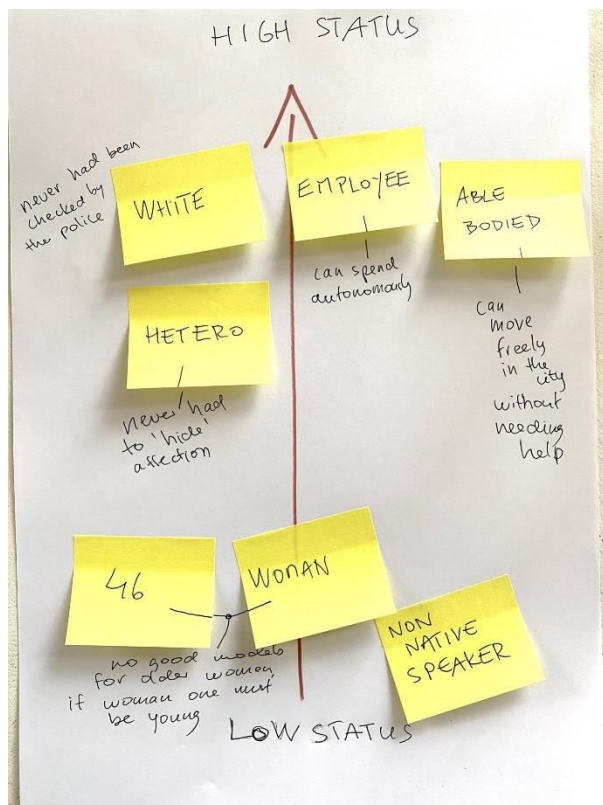 HIGH STATUS
never had been
checked by
the police
WHITE
EMPLOYEE
can spend
autonomously
ABLE
BODIED
can
move
freely
in the
city
without
needing
help
HETERO
never had
to 'hide'
affection
46
WOMAN
no good models
for older women,
if woman one must
be young
NON
NATIVE
SPEAKER
LOW STATUS